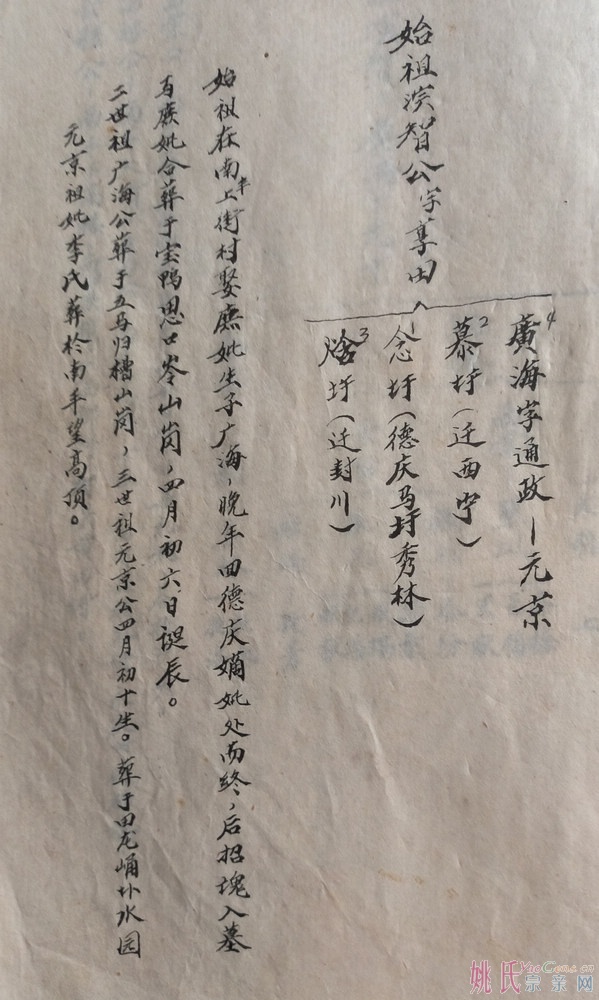 始祖淡智公字享田
廣海字通政—元京
4
慕圩(迁西宁)
2
念圩(德庆马圩秀林)
圩(迁封川)
3
始祖在南平上街村娶庶妣生子广海,晚年回德庆嫡妣处而终,后招魂入墓
与庶妣合葬于宝鸭思口岑山岗,四月初六日誔辰。
二世祖广海公葬于五马归槽山岗,三世祖元京公四月初十生。葬于田龙崅圤水园
元京祖妣李氏葬於南平望高顶。
姚氏宗亲网
YaoGens.cn